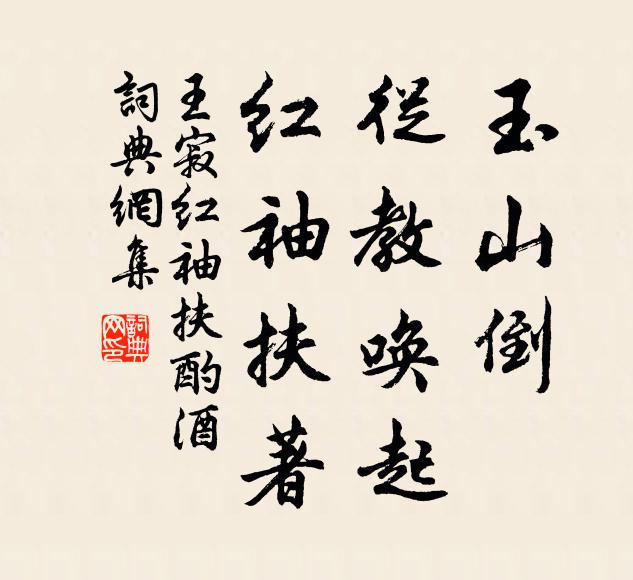 玉山倒
從教喚起
紅袖扶著
王寂紅袖扶酌酒
詞典網集
詞典网印